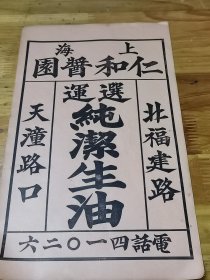 上海
仁和醬園
選運
純潔生油
北福建路
天潼路口
電話四一〇二六